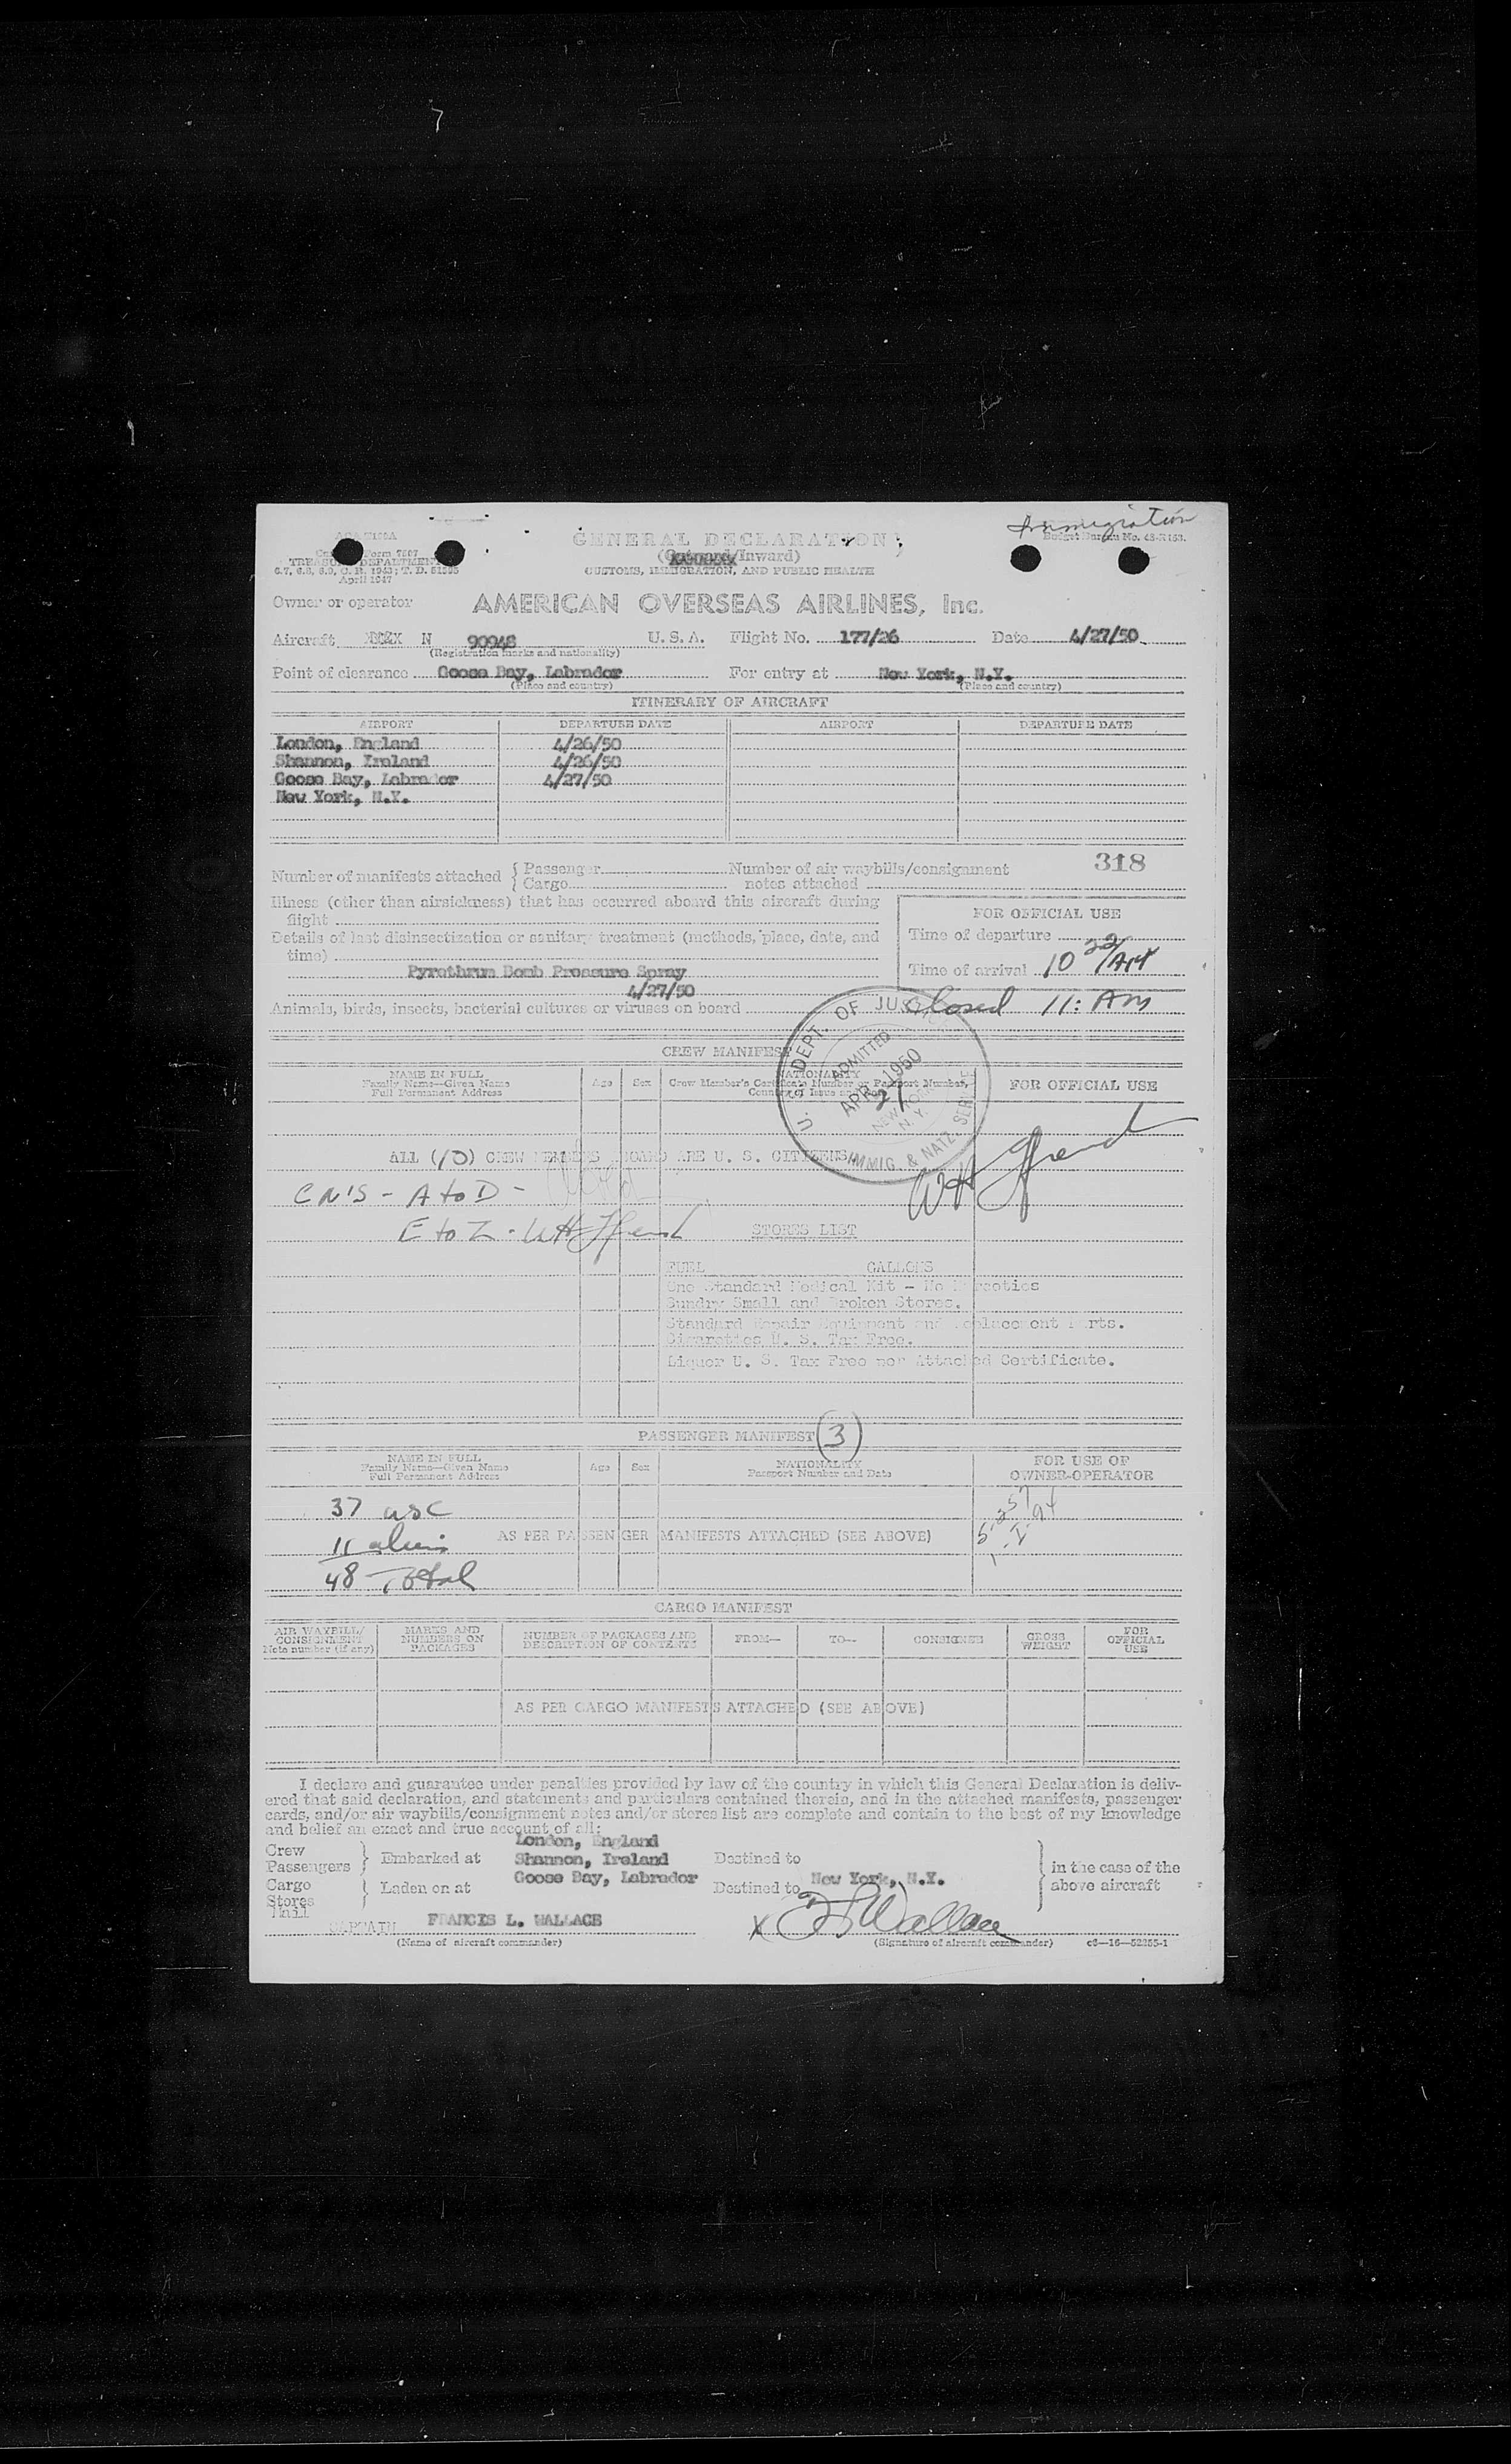 Immigration
GENERAL DECLARATION
Budget Bureau No. 48-R183.
Form 7507
(Outward/Inward)
TREASURY DEPARTMENT
CUSTOMS, IMMIGRATION, AND PUBLIC HEALTH
April 1947
Owner or operator AMERICAN OVERSEAS AIRLINES, Inc.
Aircraft N 90948 U. S. A. Flight No. 177/26 Date 4/27/50
(Registration marks and nationality)
Point of clearance Goose Bay, Labrador For entry at New York, N.Y.
(Place and country) (Place and country)
ITINERARY OF AIRCRAFT
AIRPORT DEPARTURE DATE AIRPORT DEPARTURE DATE
London, England 4/26/50
Shannon, Ireland 4/26/50
Goose Bay, Labrador 4/27/50
New York, N.Y.
318
Number of manifests attached { Passenger Number of air waybills/consignment
Cargo notes attached
Illness (other than airsickness) that has occurred aboard this aircraft during
flight
FOR OFFICIAL USE
Details of last disinsectization or sanitary treatment (methods, place, date, and
time)
Time of departure
Pyrethrum Bomb Pressure Spray
Time of arrival 10 22/AM
4/27/50
Animals, birds, insects, bacterial cultures or viruses on board
Closed 11: AM
U. S. DEPT. OF JUSTICE
ADMITTED
APR 27 1950
NEW YORK
N. Y.
IMMIG. & NATZ. SERVICE
CREW MANIFEST
NAME IN FULL
Family Name—Given Name
Full Permanent Address
Age Sex
NATIONALITY
Crew Member's Certificate Number or Passport Number,
Country of Issue and
FOR OFFICIAL USE
ALL (10) CREW MEMBERS ABOARD ARE U. S. CITIZENS
CN'S - A to D -
E to Z -
STORES LIST
FUEL GALLONS
One Standard Medical Kit - No Narcotics
Sundry Small and Broken Stores.
Standard Repair Equipment and Replacement Parts.
Cigarettes U. S. Tax Free.
Liquor U. S. Tax Free per Attached Certificate.
PASSENGER MANIFEST (3)
NAME IN FULL
Family Name—Given Name
Full Permanent Address
Age Sex
NATIONALITY
Passport Number and Date
FOR USE OF
OWNER-OPERATOR
37 usc
11 aliens AS PER PASSENGER MANIFESTS ATTACHED (SEE ABOVE)
48 Total
CARGO MANIFEST
AIR WAYBILL/
CONSIGNMENT
Note number (if any)
MARKS AND
NUMBERS ON
PACKAGES
NUMBER OF PACKAGES AND
DESCRIPTION OF CONTENTS
FROM— TO— CONSIGNEE
GROSS
WEIGHT
FOR
OFFICIAL
USE
AS PER CARGO MANIFESTS ATTACHED (SEE ABOVE)
I declare and guarantee under penalties provided by law of the country in which this General Declaration is deliv-
ered that said declaration, and statements and particulars contained therein, and in the attached manifests, passenger
cards, and/or air waybills/consignment notes and/or stores list are complete and contain to the best of my knowledge
and belief an exact and true account of all:
London, England
Crew
Passengers } Embarked at Shannon, Ireland Destined to
Goose Bay, Labrador
Cargo
Stores } Laden on at Destined to New York, N.Y.
Mail
in the case of the
above aircraft
CAPTAIN FRANCIS L. WALLACE X F L Wallace
(Name of aircraft commander) (Signature of aircraft commander) c3—16—52255-1